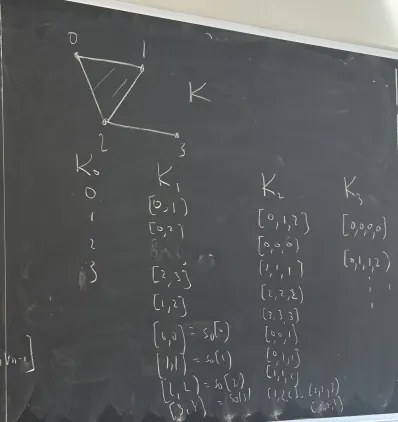 0
1
K
2
3
K₀
0
1
2
3
K₁
[0,1]
[0,2]
[2,3]
[1,2]
[0,0] = s₀[0]
[1,1] = s₀[1]
[2,2] = s₀[2]
[3,3] = s₀[3]
K₂
[0,1,2]
[0,0,0]
[1,1,1]
[2,2,2]
[3,3,3]
[0,0,1]
[0,1,1]
K₃
[0,0,0,0]
[0,1,1,2]